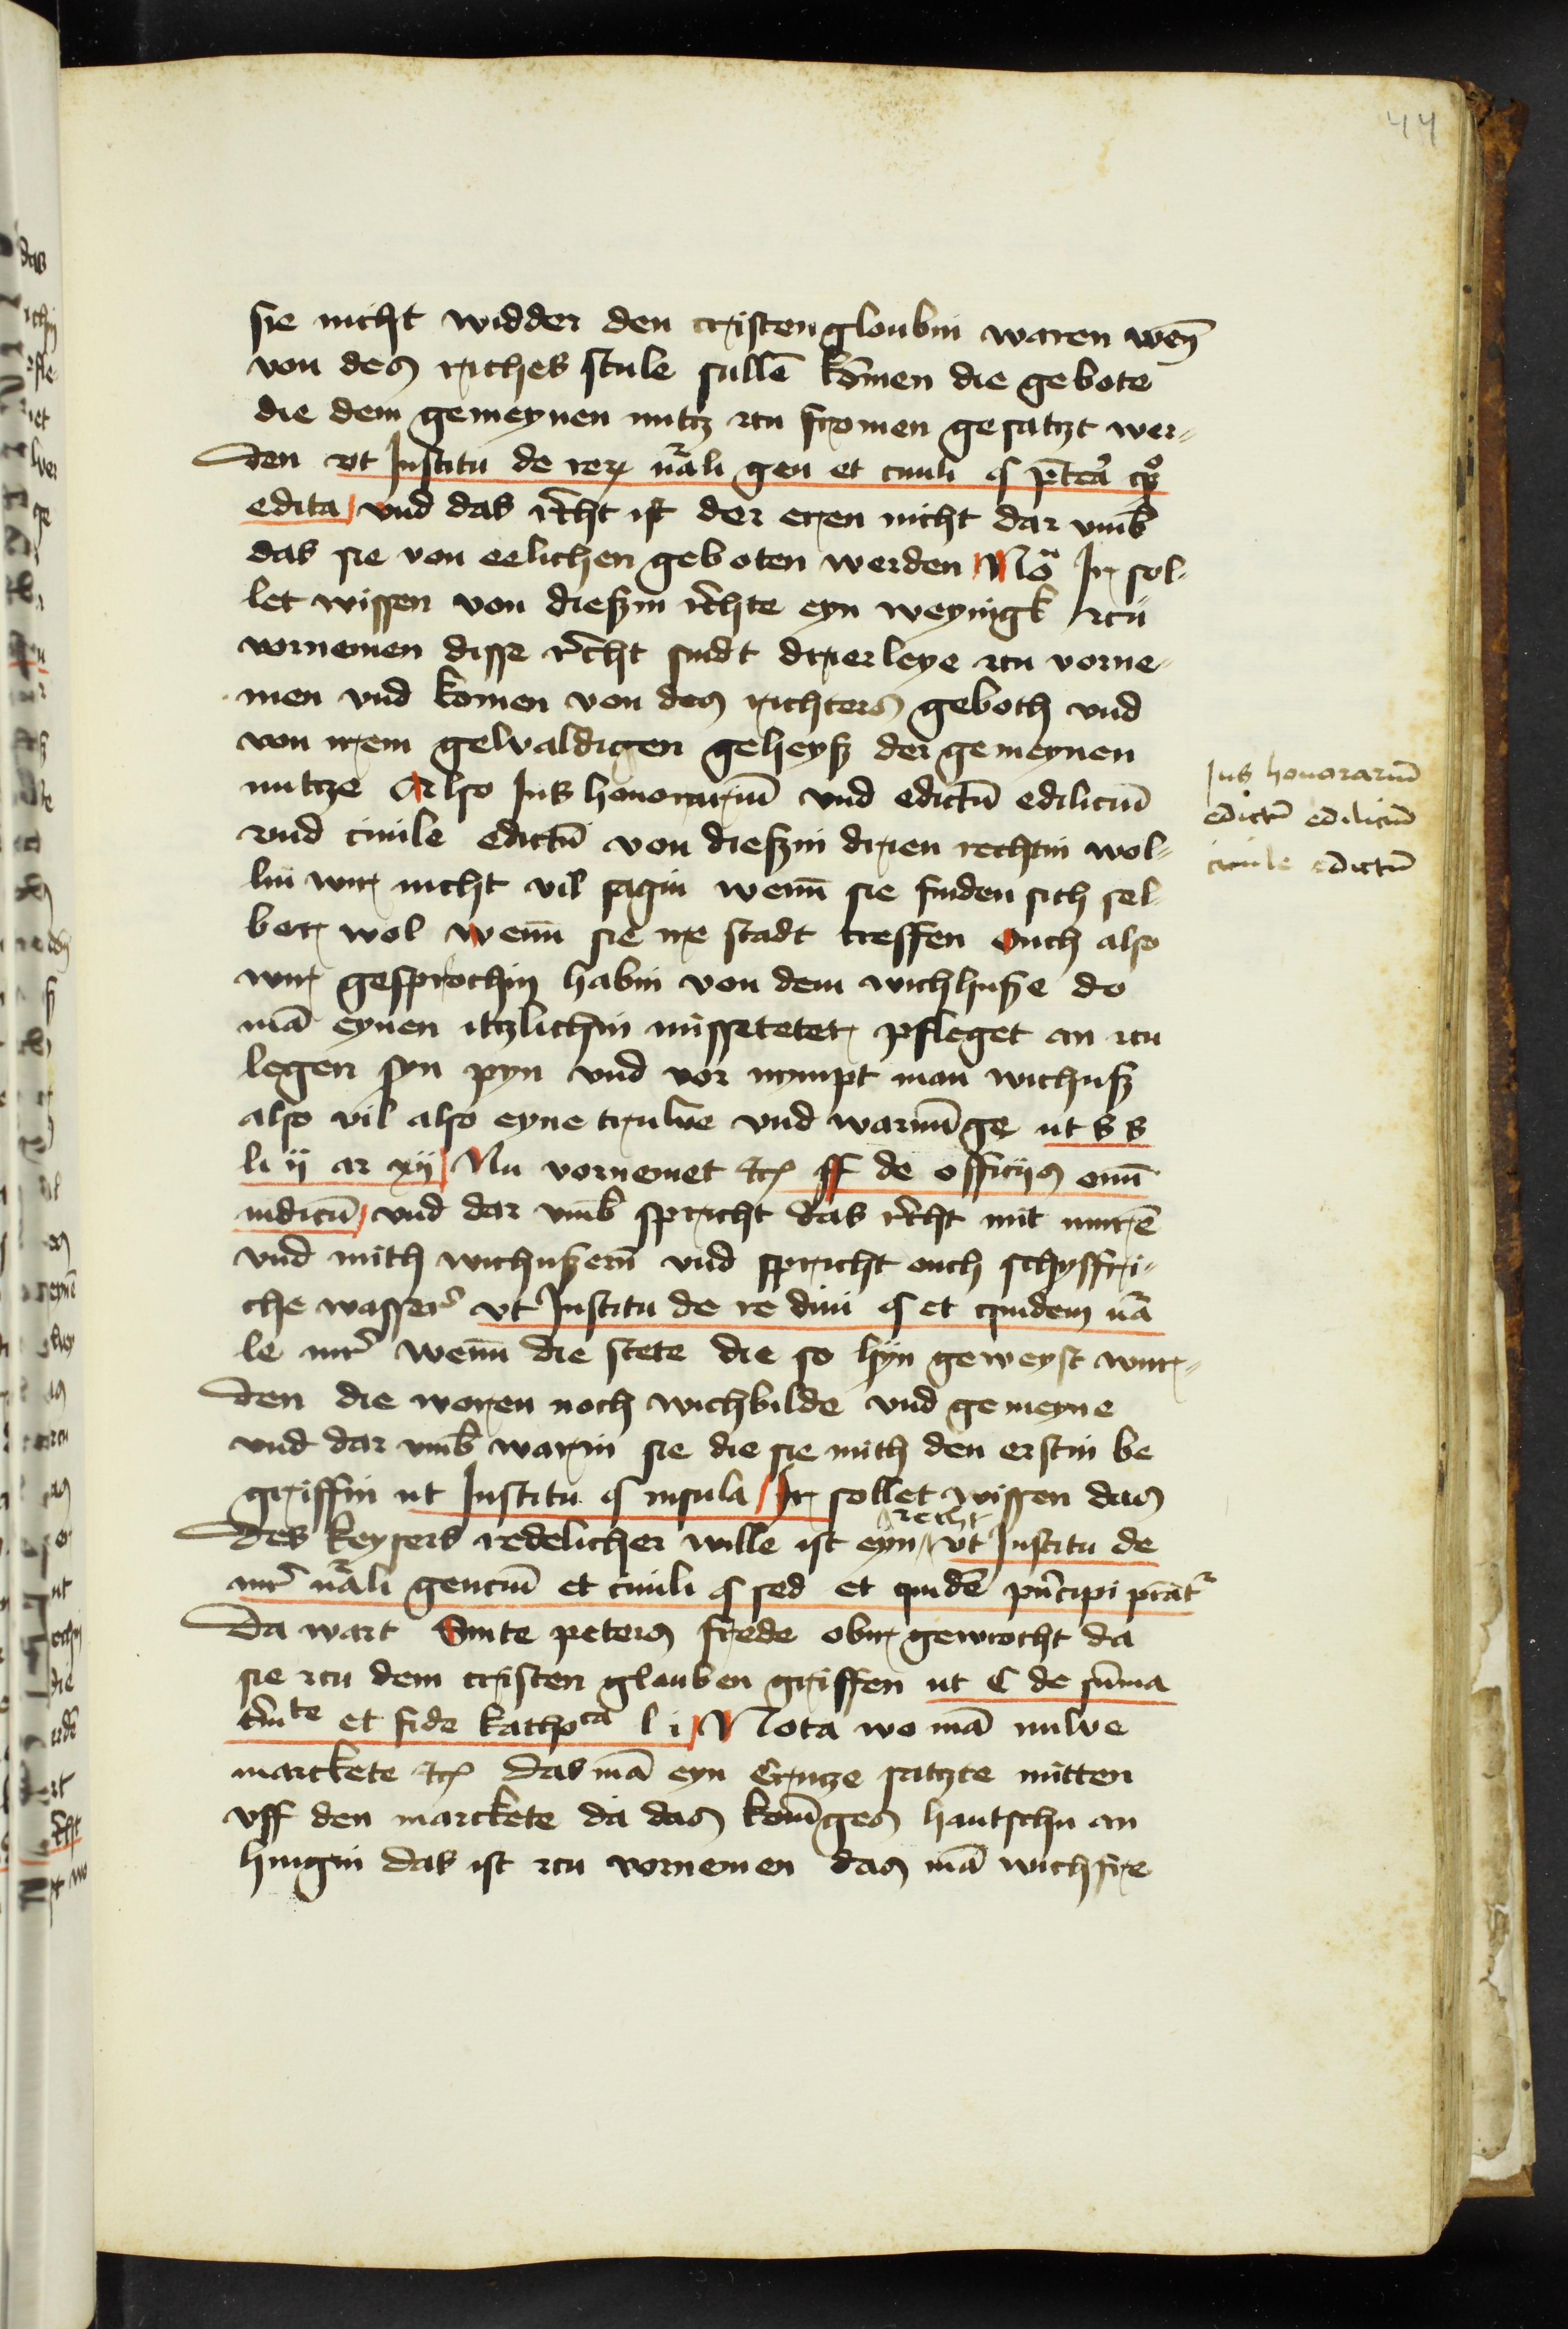 44
sie nicht widder den cristen gloubin waren weñ
von des riches stule sullē kōmen die gebote
die dem gemeynen nutz czu fromen gesatzt wer-
den vt Institu de rerꝫ nr̄ali gen et ciuili §
edita vnd das r̄cht ist der eren nicht dar vmb̄
das sie von eelichen geboten werden Nōa Ir sol-
let wissen von dieszin r̄chte eyn weynigk czu
vornemen disse r̄cht sindt drierleye czu vorne-
men vnd komen von des richters geboth vnd
von irem gewaldigen geheysz der gemeynen
nutcze Also Ius honorariū vnd edictū ediliciū
vnd ciuile edictū von dieszin drien rechtin wol-
lin wir nicht vil sagin wenn̄ sie finden sich sel-
ber wol wenn̄ sie ire stadt treffen Ouch also
wir gesprochin habin von dem wichhusze do
mā eynen itzlichin missetetter pfleget an czu
legen syn pyn vnd vor nympt man wichusz
also vil also eyne truwe vnd warnūge ut s s
li ij ar xij Nu vornemet etc ff de officijs omī
iudicū vnd dar vmb̄ spricht das r̄cht mit murē
vnd mith wichuszern̄ vnd spricht ouch schyffri-
che wasser vt Institu de re diui § et quidem nr̄a
le iur̄ wenn̄ die stete die so hyn geweyst wur-
den die woren noch wichbilde vnd gemeyne
vnd dar vmb̄ warin sie die sie mith den erstin be
griffin ut Institu § insula Ir sollet wissen das
recht
des keysers redelicher wille ist eyn vt Institu de
iur̄ nr̄ali genciū et ciuili § sed et quidē pn̄cipi
Da wart Sinte peters frede obir geworcht da
sie czu dem cristen glauben griffen ut C de sūma
tr̄nite et fide kathoca l i Nota wo mā nuwe
marckete etc das mā eyn Crutze satzte mitten
vff den marckete da das kōniges hantschu an
hingin das ist czu vornemen das mā wichfre
Ius honorariū
edictū ediliciū
ciuile edictū